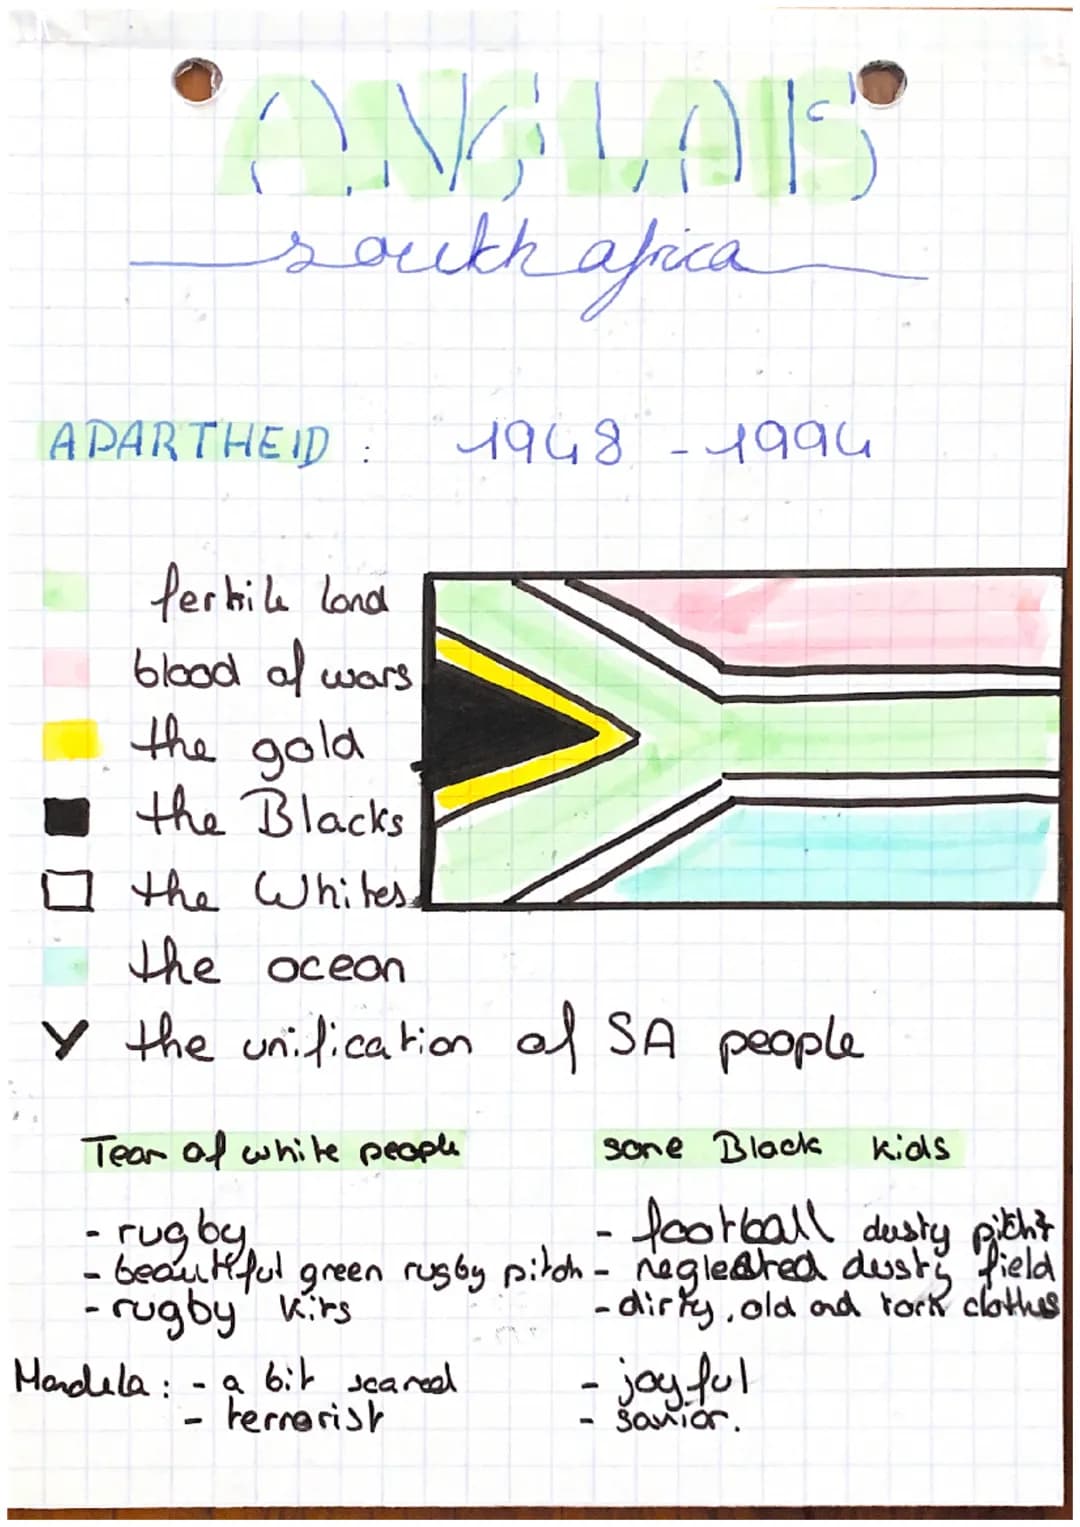 ANGLAIS
south africa
APARTHEID : 1948 - 1994
fertile land
blood of wars
the gold
the Blacks
the Whites
the ocean
Y the unification of SA people
Team of white people
some Black kids
- rugby
- beautiful green rugby pitch
- rugby kits
- football dusty pitch
- neglected dusty field
- dirty, old and tork clothes
Mandela : - a bit scared
- terrorist
- joyful
- savior.